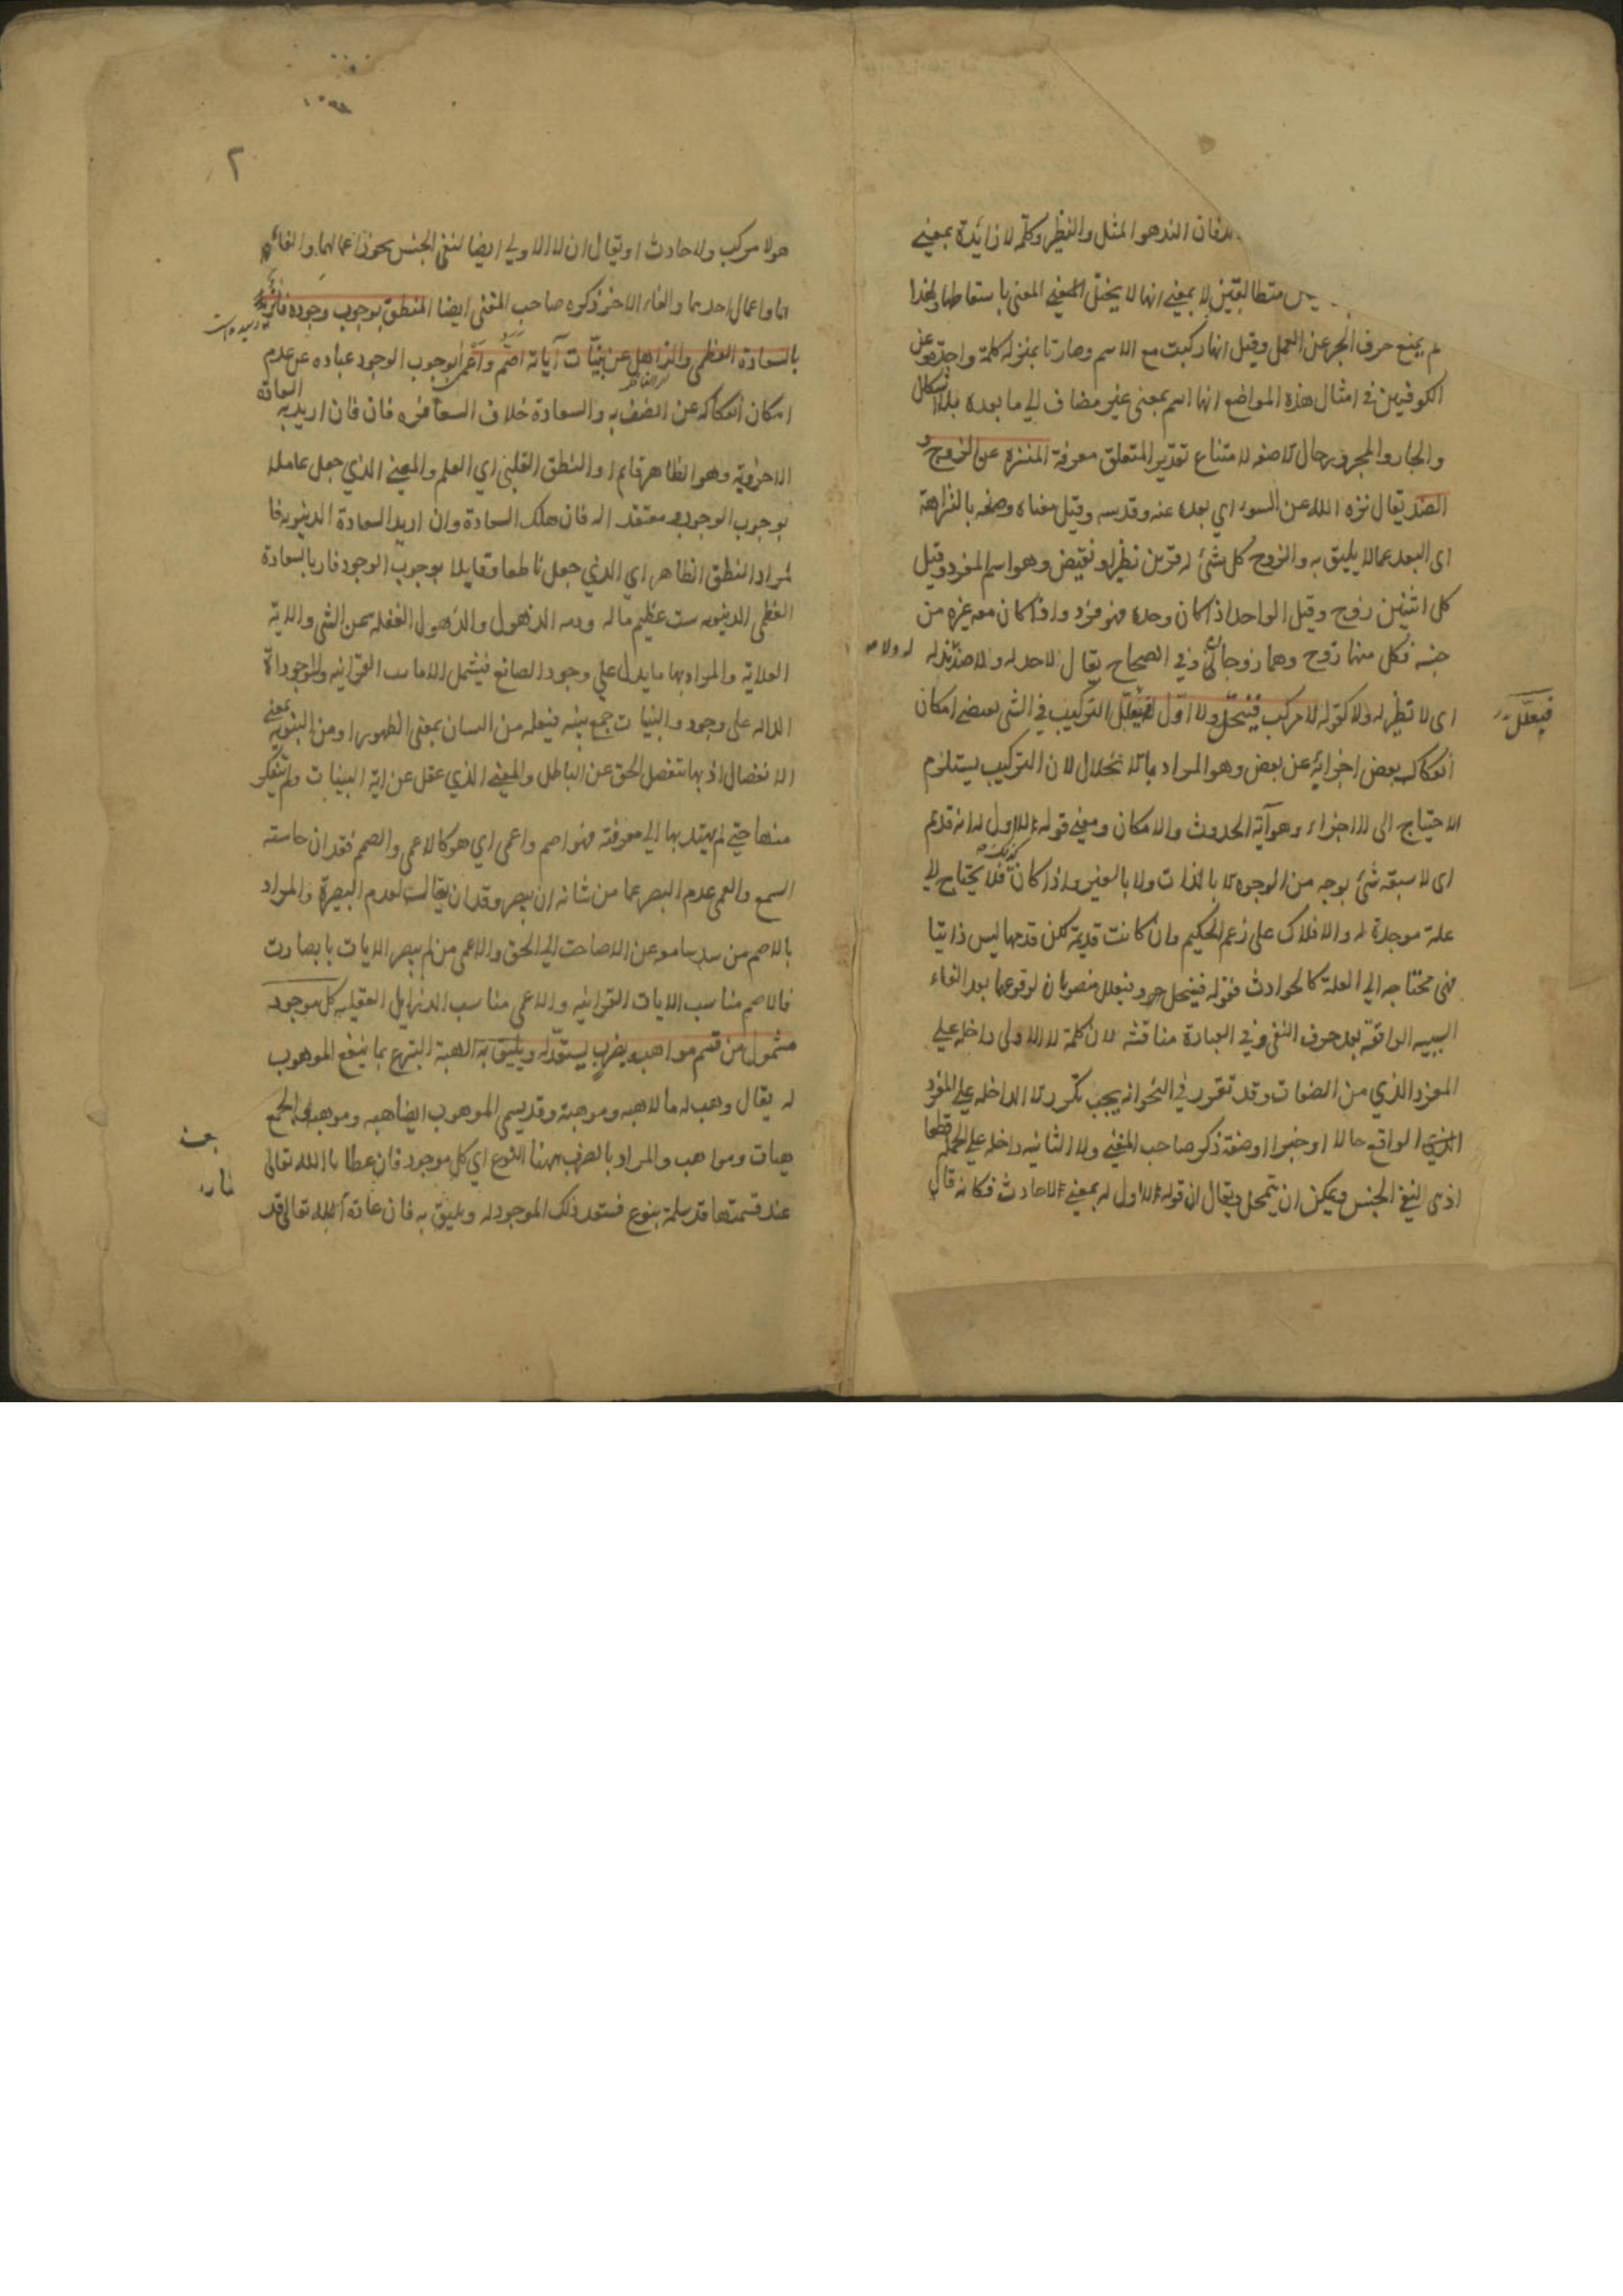 فان الند هو المثل والنظير وكلمة لا زائدة بمعنى
متطالبتين لا بمعنى انها لا يختل المعنى باسقاطها ولهذا
لم يمنع حرف الجر عن العمل وقيل انها ركبت مع الاسم وصارتا بمنزلة كلمة واحدة وعن
الكوفيين في امثال هذه المواضع انها اسم بمعنى غير مضاف الي ما بعده فلا اشكال
والجار والمجرور حال لا صفة لامتناع تقدير المتعلق معرفة المنزه عن الزوج و
الضد يقال نزه الله عن السوء اي بعده عنه وقدسه وقيل معناه وصفه بالنزاهة
اى البعد عما لا يليق به والزوج كل شئ له قرين نظير او نقيض وهو اسم للفرد وقيل
كل اثنين زوج وقيل الواحد اذا كان وحده فهو فرد واذا كان معه غيره من
جنسه فكل منهما زوج وهما زوجان وفي الصحاح يقال لا ضد له ولا ضديد له
اى لا نظير له ولا كفو له لا مركب فينحل ولا اول فيعلل التركيب في الشئ يقتضى امكان
فيعلل
انفكاك بعض اجزائه عن بعض وهو المراد بالانحلال لان التركيب يستلزم
الاحتياج الى الاجزاء وهو آية الحدوث والامكان ومعنى قوله لا اول له انه قديم
اى لا سبقه شئ بوجه من الوجوه لا بالذات ولا بالغير واذا كان كذلك فلا يحتاج الي
علة موجدة له والافلاك على زعم الحكيم وان كانت قديمة لكن قدمها ليس ذاتيا
فهى محتاجه الي العلة كالحوادث فقوله فينحل وفيعلل منصوبان لوقوعهما بعد الفاء
السببيه الواقعة بعد حرف النفى وفي العبادة مناقشة لان كلمة لا الاولى داخله علي
المفرد الذي من الصفات وقد تقرر في النحو انه يجب تكرر لا الداخله علي المفرد
الواقع حالا او خبرا او صفة ذكره صاحب المغني ولا الثانيه داخله علي الجملة قطعا
اذ هى لنفي الجنس ويمكن ان يتمحل ويقال ان قوله لا اول له بمعنى لا حادث فكانه قال
٢
هو لا مركب ولا حادث او يقال ان لا الاولي ايضا لنفى الجنس يجوز اعمالهما والغائهما
واعمال احديهما والغاء الاخر ذكره صاحب المغنى ايضا المنطق بوجوب وجوده فائز
بالسعادة العظمى والذاهل عن بينات آياته اصم واعمى الوجوب الوجود عباده عن عدم
امكان انفكاكه عن المتصف به والسعادة خلاف الشقاوة فان اريد به السعادة
الاخروية وهو الظاهر او النطق القلبى اي العلم والمعنى الذي جعل عامله
بوجوب الوجود معتقد اله فان تلك السعادة وان اريد السعادة الدنيويه فا
لمراد النطق الظاهر اي الذي جعل ناطقا وقايلا بوجوب الوجود فاز بالسعادة
العظمى الدنيويه والذهول الغفله عن الشئ والاية
العلاية والمراد بها ما يدل علي وجود الصانع فيشمل الايات القرانيه والموجوداة
الداله على وجوده والبنيات جمع بينه فيعله من البيان بمعنى الظهور او من البينونة بمعنى
الانفصال اذ بها تنفصل الحق عن الباطل والمعنى الذي غفل عن اية البينات ولم يتفكر
منها حتى لم يهتد بها الي معرفته فهو اصم واعمى اي هو كالاعمى والصمم فقدان حاسته
السمع والعمى عدم البصر عما من شانه ان يبصر وقد يقال لعدم البصيرة والمراد
بالاصم من سد سامعه عن الحق والاعمى من لم يبصر الايات بابصارت
فالاصم مناسب الايات القرانيه والاعمى مناسب الدلايل العقليه كل موجود
مشمول من قسم مواهبه بضرب يستعد له ويليق به الهبة التبرع بما ينفع الموهوب
له يقال وهب له مالا هبه وموهبة وقد يسمى الموهوب ايضا هبه وموهبة والجمع
هبات ومواهب والمراد بالضرب ههنا النوع اي كل موجود فان عطايا الله تعالى
عند قسمتها قد شمله بنوع فستعد ذلك الموجود له ويليق به فان عادة الله تعالى قد